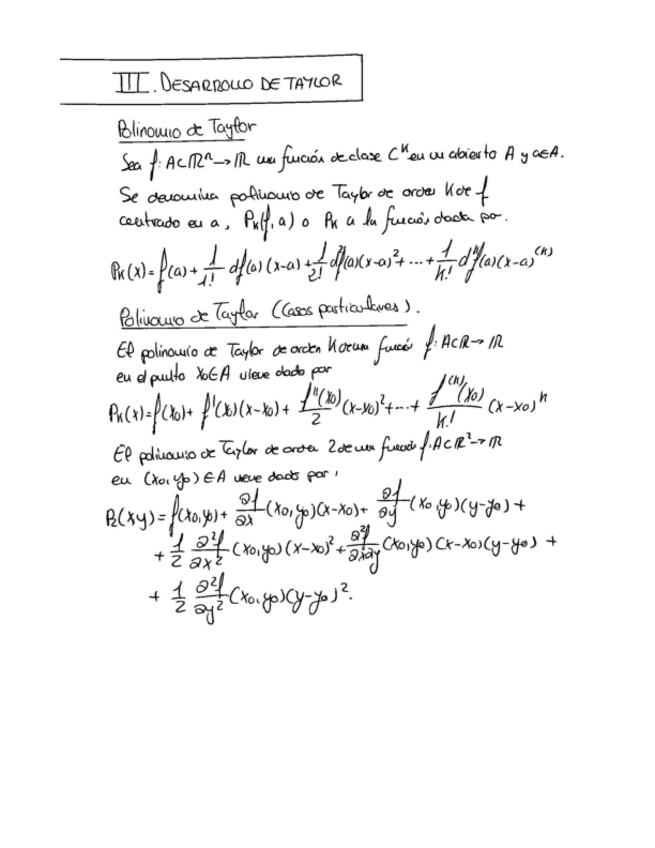 III. DESARROLLO DE TAYLOR
Polinomio de Taylor
Sea f: A⊂ℝⁿ → ℝ una función de clase Cᴷ en un abierto A y a∈A.
Se denomina polinomio de Taylor de orden K de f
centrado en a, Pₖ(f, a) o Pₖ a la función dada por.
Pₖ(x) = f(a) + 1/1! df(a)(x-a) + 1/2! d²f(a)(x-a)² + ... + 1/k! dᴷf(a)(x-a)⁽ᴷ⁾
Polinomio de Taylor (Casos particulares).
El polinomio de Taylor de orden K de una función f: A⊂ℝ → ℝ
en el punto x₀∈A viene dado por
Pₖ(x) = f(x₀) + f'(x₀)(x-x₀) + f''(x₀)/2 (x-x₀)² + ... + f⁽ᴷ⁾(x₀)/k! (x-x₀)ᴷ
El polinomio de Taylor de orden 2 de una función f: A⊂ℝ² → ℝ
en (x₀, y₀) ∈ A viene dado por:
P₂(x y) = f(x₀, y₀) + ∂f/∂x (x₀, y₀)(x-x₀) + ∂f/∂y (x₀, y₀)(y-y₀) +
+ 1/2 ∂²f/∂x² (x₀, y₀)(x-x₀)² + ∂²f/∂x∂y (x₀, y₀)(x-x₀)(y-y₀) +
+ 1/2 ∂²f/∂y² (x₀, y₀)(y-y₀)².